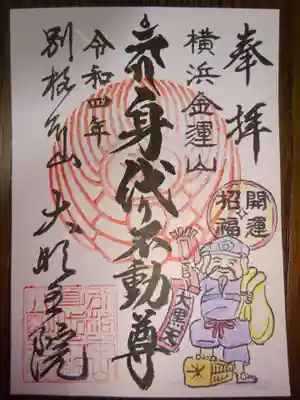 奉拝
横浜金運山
開運
招福
大黒天
身代り不動尊
令和四年
別格本山
大明王院